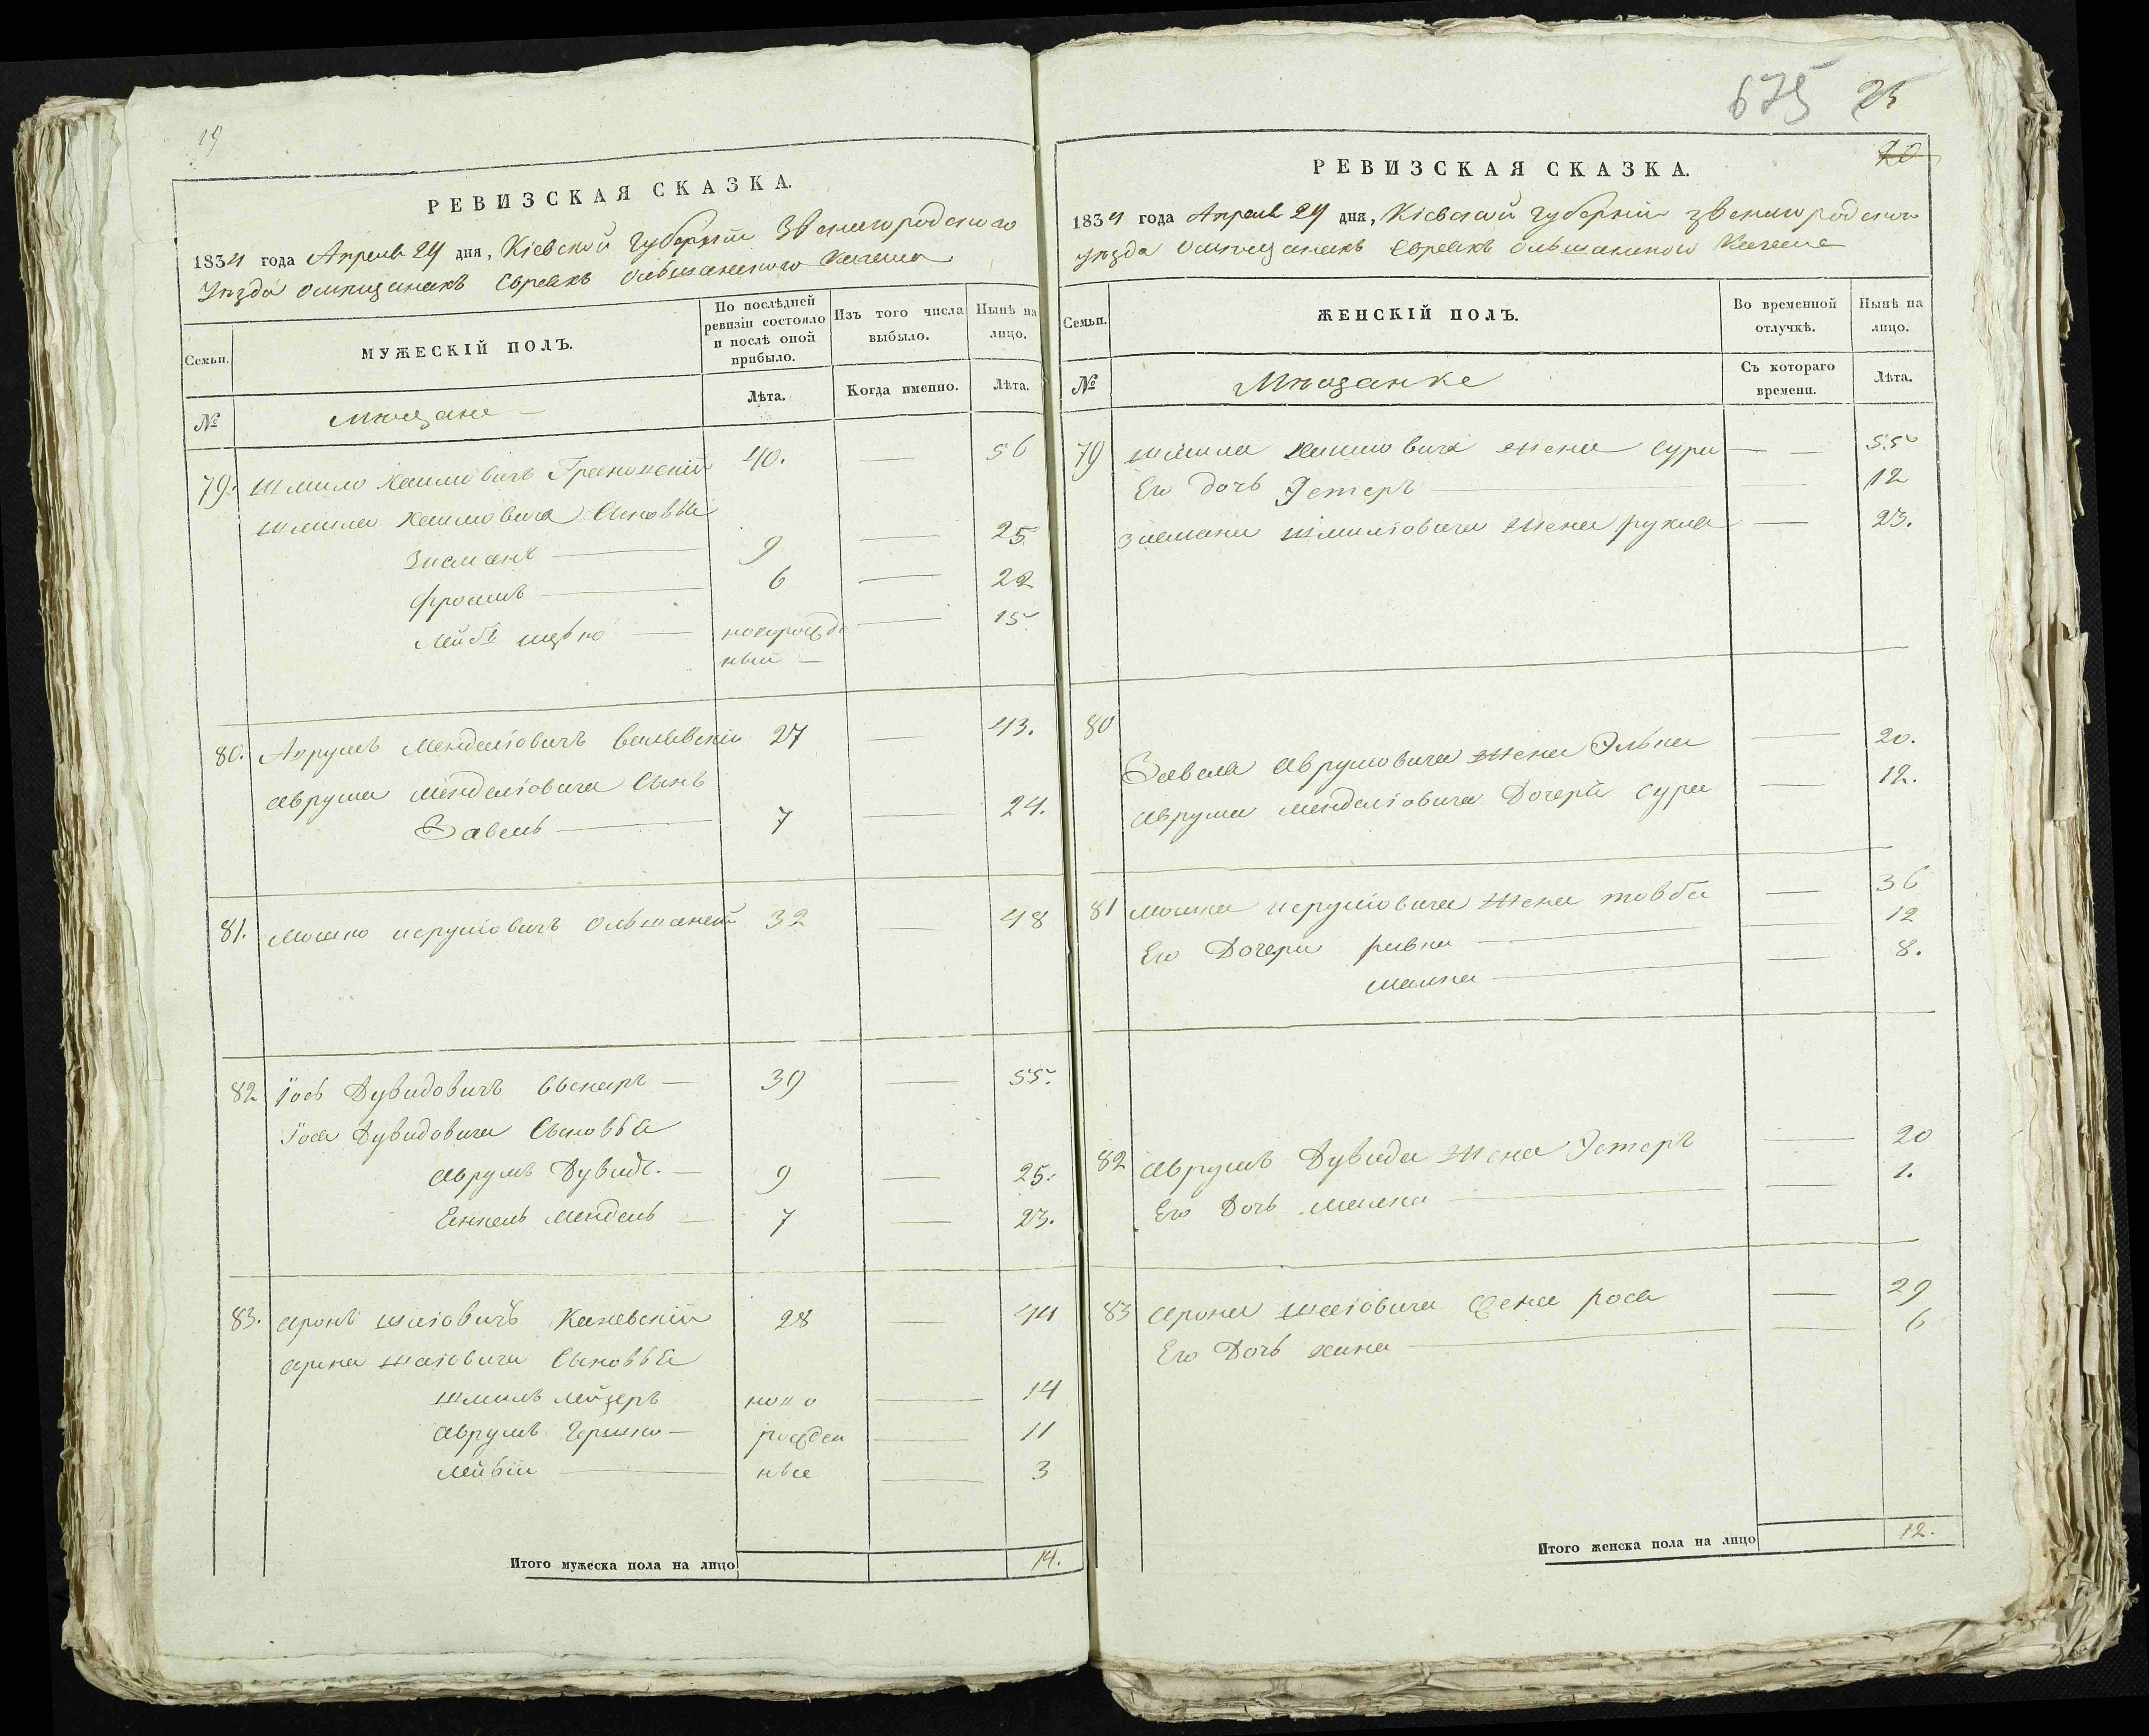 19
РЕВИЗСКАЯ СКАЗКА.
1834 года Апреля 24 дня, Кіевской Губерніи Звенигородского
Уѣзда омѣщанахъ Евреяхъ Ольшанского Кагала
Семьи.
МУЖЕСКІЙ ПОЛЪ.
По послѣдней ревизіи состояло и послѣ оной прибыло.
Изъ того числа выбыло.
Нынѣ на лицо.
№
мѣщане
Лѣта.
Когда именно.
Лѣта.
79. Шмило Хаимовичъ 40. — 56
Шмила Хаимовича Сыновья
Зисманъ — 9 — 25
Фроимъ — 6 — 22
Лейбъ — новорожде — 15
ный —
80. Аврумъ Менделіовичъ 27 — 43.
Аврума Менделіовича Сынъ
Завель — 7 — 24.
81. Мошко Сруліовичъ Ольшанскій 32 — 48
82 Іось Дувидовичъ — 39 — 55.
Іося Дувидовича Сыновья
Аврумъ Дувидъ. — 9 — 25.
Янкель Мендель — 7 — 23.
83. Аронъ Шаіовичъ Каневскій 28 — 44
Арона Шаіовича Сыновья
Шмиль Лейзеръ ново — 14
Аврумъ Гершко — рожден — 11
Лейвій — ные — 3
Итого мужеска пола на лицо 14.
675 25
20
РЕВИЗСКАЯ СКАЗКА.
1834 года Апреля 24 дня, Кіевской Губерніи Звенигородского
Уѣзда омѣщанахъ Евреяхъ Ольшанского Кагала
Семьи.
ЖЕНСКІЙ ПОЛЪ.
Во временной отлучкѣ.
Нынѣ на лицо.
№
Мѣщанке
Съ котораго времени.
Лѣта.
79 Шмила Хаимовича жена Сура — — 55
Его дочь Эстеръ — — 12
Зисмана Шмиліовича жена Рухля — 23.
80
Завеля Аврумовича жена Элька — 20.
Аврума Менделіовича Дочерь Сура — 12.
81 Мошка Сруліовича жена Товба — 36
Его Дочери Ривка — — 12
Малка — — 8.
82 Аврумъ Дувида жена Эстеръ — 20
Его Дочь Малка — — 1.
83 Арона Шаіовича жена Рося — 29
Его Дочь Хана — — 6
Итого женска пола на лицо 12.